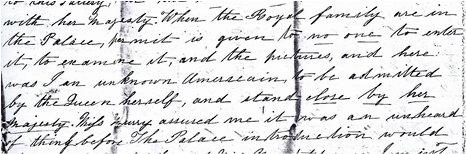 to this Gallery, 
with her Majesty When the Royal family are in
the Palace, permit is given to no one to enter
it, to examine it, and the pictures, and here
was I an unknown Amerseain, to be admitted
by the Queen herself, and stand close by her
Majesty. Miss Murry assured me it was an unheard
of thing before The Palace introduction would